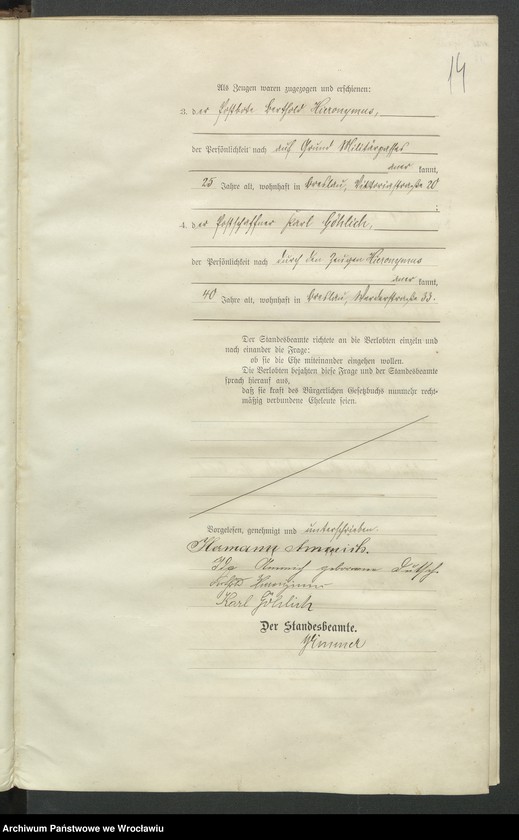 14
Als Zeugen waren zugezogen und erschienen:
3. der Postbote Berthold Hieronymus,
der Persönlichkeit nach auf Grund Militärpasses
aner kannt,
25 Jahre alt, wohnhaft in Breslau, Viktoriastraße 20
;
4. der Postschaffner Karl Göhlich,
der Persönlichkeit nach durch den Zeugen Hieronymus
aner kannt,
40 Jahre alt, wohnhaft in Breslau, Werderstraße 33.
Der Standesbeamte richtete an die Verlobten einzeln und
nach einander die Frage:
ob sie die Ehe miteinander eingehen wollen.
Die Verlobten bejahten diese Frage und der Standesbeamte
sprach hierauf aus,
daß sie kraft des Bürgerlichen Gesetzbuchs nunmehr recht-
mäßig verbundene Eheleute seien.
Vorgelesen, genehmigt und unterschrieben
Hermann
Ida geborene
Hieronymus
Karl Göhlich
Der Standesbeamte.
Archiwum Państwowe we Wrocławiu